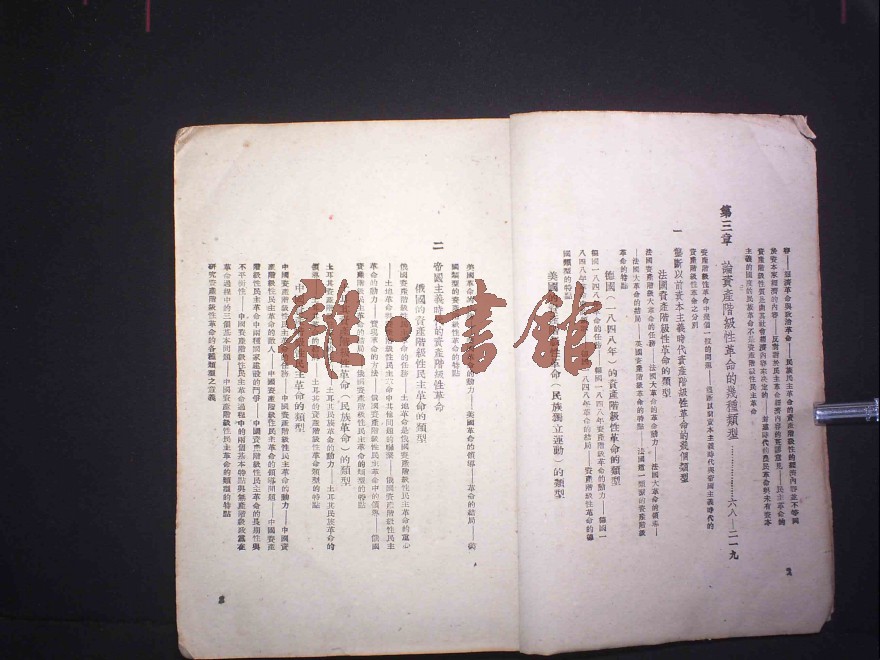 容——經濟革命與政治革命——民族民主革命的資產階級性的經濟內容並不等同
於資本家經濟的內容——反對對於民主革命經濟內容的荒謬意見——民主革命的
資產階級性質是由其社會經濟內容來決定的——封建時代的農民革命與未有資本
主義的國度的民族革命不是資產階級性民主革命
第三章 論資產階級性革命的幾種類型……六八—二一九
資產階級性革命中幾個一般的問題——壟斷以前資本主義時代與帝國主義時代的
資產階級性革命之分別
一 壟斷以前資本主義時代資產階級性革命的幾個類型
法國資產階級性革命的類型
法國資產階級大革命的任務——法國大革命的動力——法國大革命的領導
——法國大革命的結局——英國資產階級性革命的特點——法國這一類型的資產階級
革命的特點
德國(一八四八年)的資產階級性革命的類型
德國一八四八年革命的任務——德國一八四八年資產階級革命的動力——德國一
八四八年 八四八年革命的結局——資產階級性革命的德
國類型的特點
美國的 性革命(民族獨立運動)的類型
美國革命的 的動力——美國革命的領導——革命的結局——美
國類型的資產階級性革命的特點
二 帝國主義時代的資產階級性革命
俄國的資產階級性民主革命的類型
俄國資產階級性民主革命的任務——土地革命是俄國資產階級性民主革命的重心
——土地革命 革命中其他問題的聯繫——俄國資產階級性民主
革命的動力——實現革命的方法——俄國資產階級性民主革命中的領導——俄國
資產階級性 革命的結局——俄國 資產階級性民主革命的特點
土耳其 階級性革命(民族革命)的類型
土耳其資產 土耳其民族革命的動力——土耳其民族革命的
領導 土耳其的資產階級性革命類型的特點
中國 民主革命的類型
中國資產階級性民主革命的任務——中國資產階級性民主革命的動力——中國資
產階級性民主革命的敵人——中國資產階級性民主革命的領導問題——中國資產
階級性民主革命中兩種國家建設的鬥爭——中國資產階級性民主革命的長期性與
不平衡性——中國資產階級性民主革命過程中的兩個基本特點與無產階級政黨在
革命過程中的三個基本問題——中國資產階級性民主革命的類型的特點
研究資產階級性革命的各種類型之意義
雜·書館